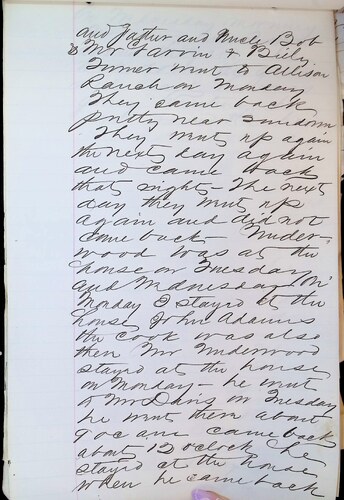 and Father and Uncle Bob
& Mr Garvin & Billy
Turner went to Allison
Ranch on Monday
They came back
pretty near sundown
They went up again
the next day again
and came back
that night - The next
day they went up
again and did not
come back - Under-
wood was at the
house on Tuesday
and Wednesday On
Monday I stayed at the
house John Adams
the cook was also
then Mr Underwood
stayed at the house
on Monday - he went
to Mr Davis on Tuesday
he went there about
9 oc and came back
about 12 oclock he
stayed at the house
when he came back